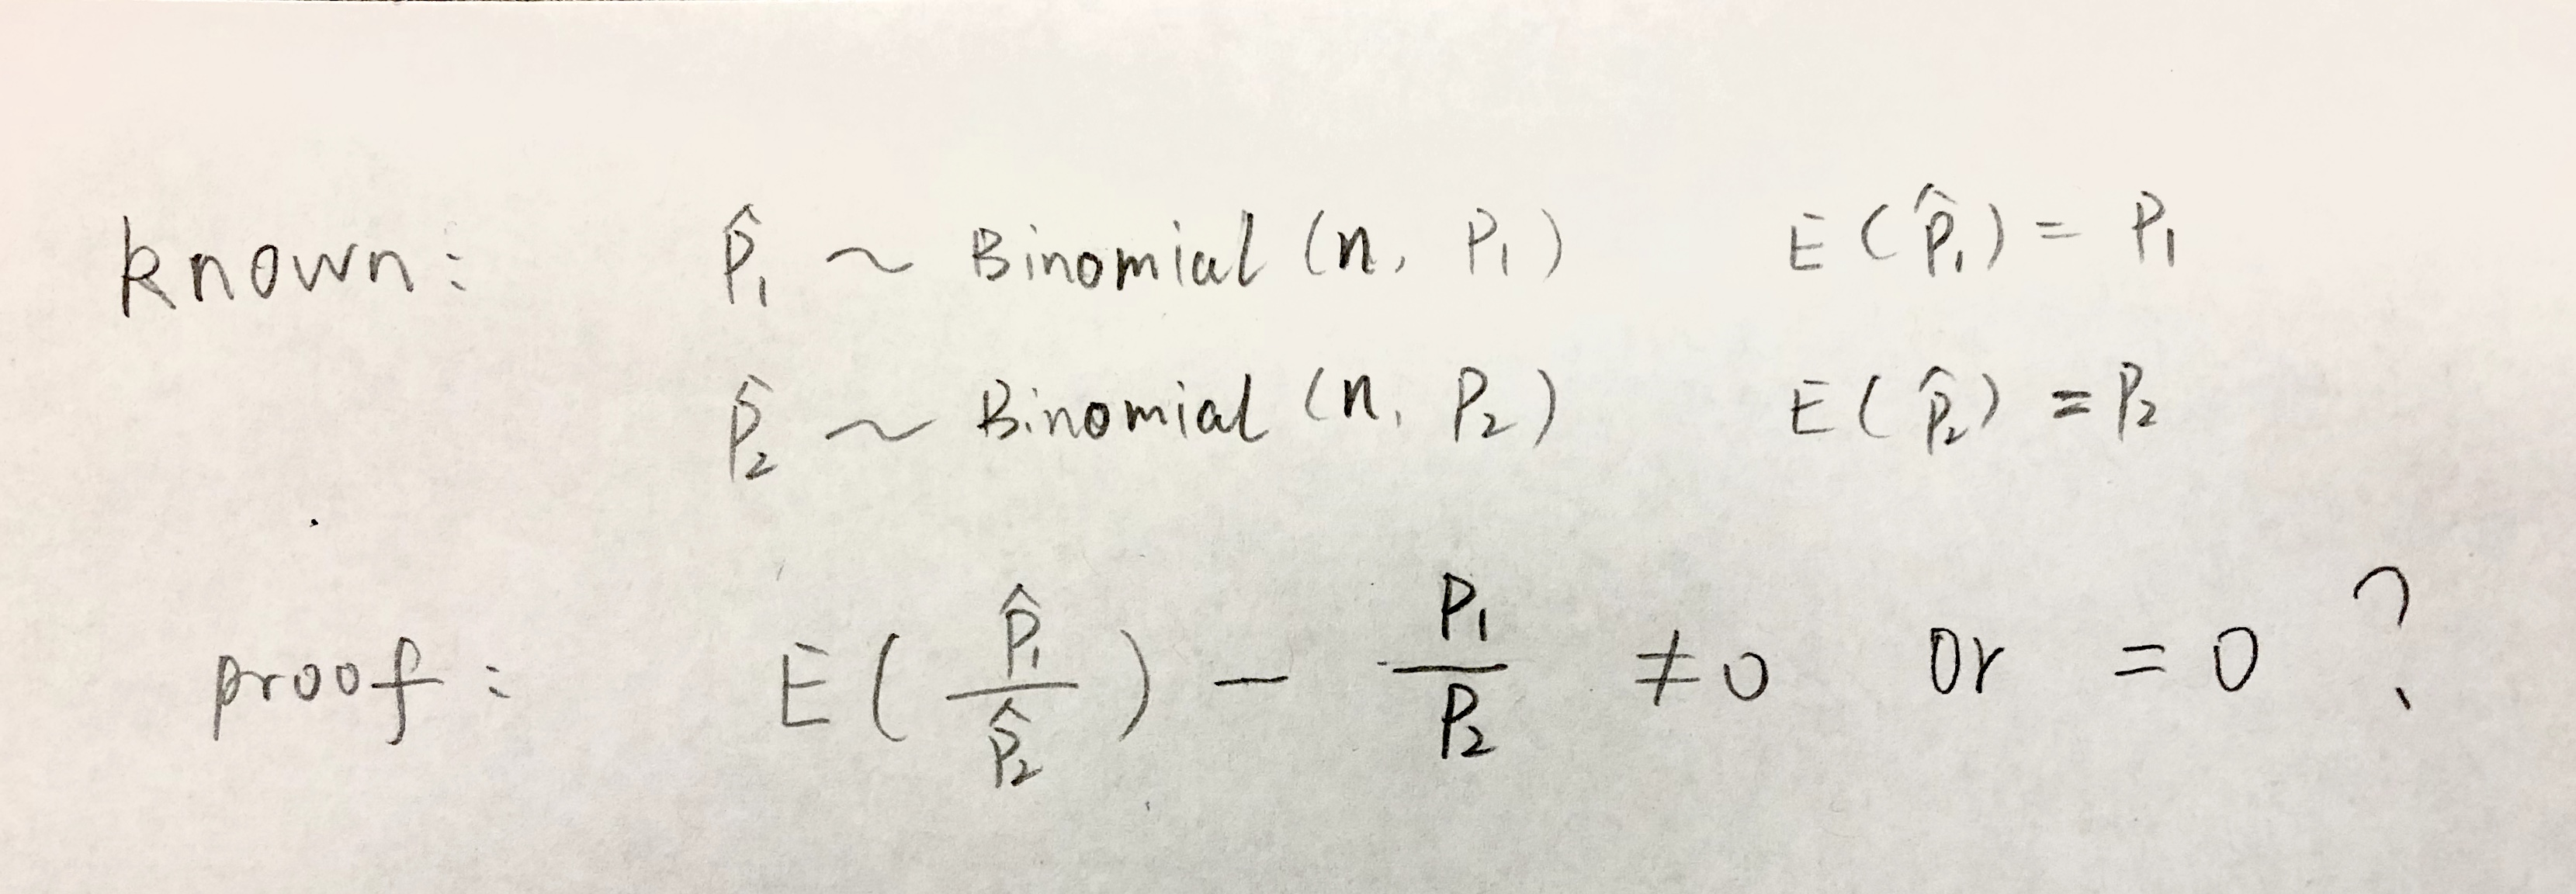 known: p̂₁ ~ Binomial (n, P₁) E(p̂₁) = P₁
p̂₂ ~ Binomial (n, P₂) E(p̂₂) = P₂
proof: E(p̂₁/p̂₂) - P₁/P₂ ≠0 or =0 ?